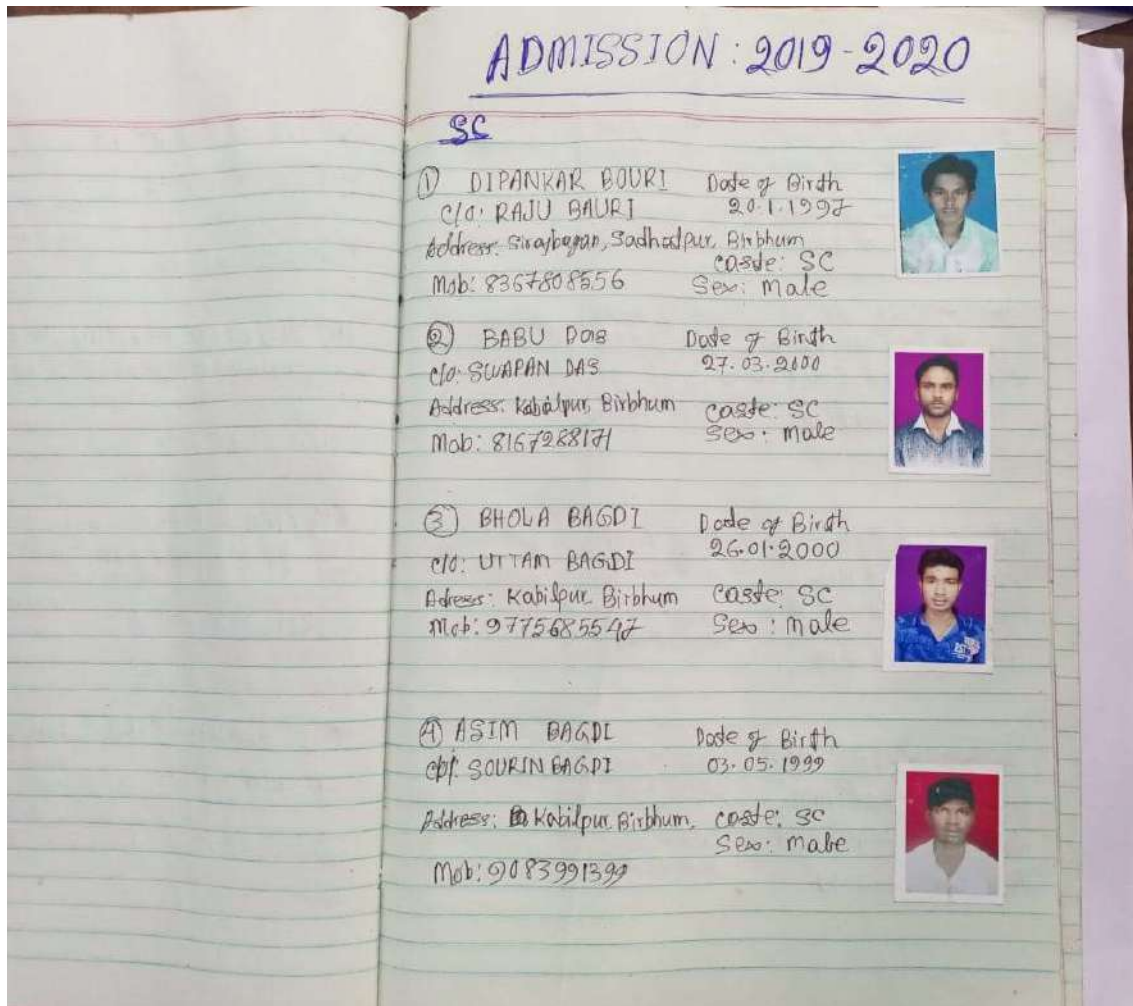 ADMISSION : 2019-2020
SC
① DIPANKAR BOURI Date of Birth
C/O: RAJU BAURI 20.1.1997
Address: Sirajbagan, Sadhodpur, Birbhum
Caste: SC
Mob: 8367808556 Sex: Male
② BABU Das Date of Birth
C/O: SWAPAN DAS 27.03.2000
Address: Kabilpur, Birbhum Caste: SC
Mob: 8167288171 Sex: Male
③ BHOLA BAGDI Date of Birth
C/O: UTTAM BAGDI 26.01.2000
Adress: Kabilpur Birbhum Caste: SC
Mob: 9775685547 Sex: Male
④ ASIM BAGDI Date of Birth
SOURIN BAGDI 03.05.1999
Address: Kabilpur, Birbhum, Caste: SC
Sex: Male
Mob: 9083991399